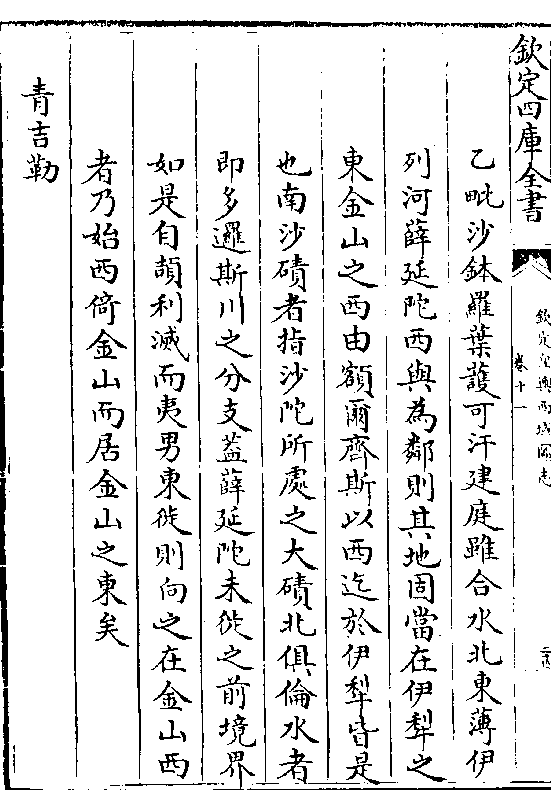 欽定四庫全書
欽定皇輿西域圖志
卷十一
乙毗沙鉢羅葉護可汗建庭雖合水北東薄伊
列河薛延陀西與為鄰則其地固當在伊犁之
東金山之西由額爾齊斯以西迄於伊犁皆是
也南沙磧者指沙陀所處之大磧北俱倫水者
即多邏斯川之分支蓋薛延陀未徙之前境界
如是自頡利滅而夷男東徙則向之在金山西
者乃始西倚金山而居金山之東矣
青吉勒